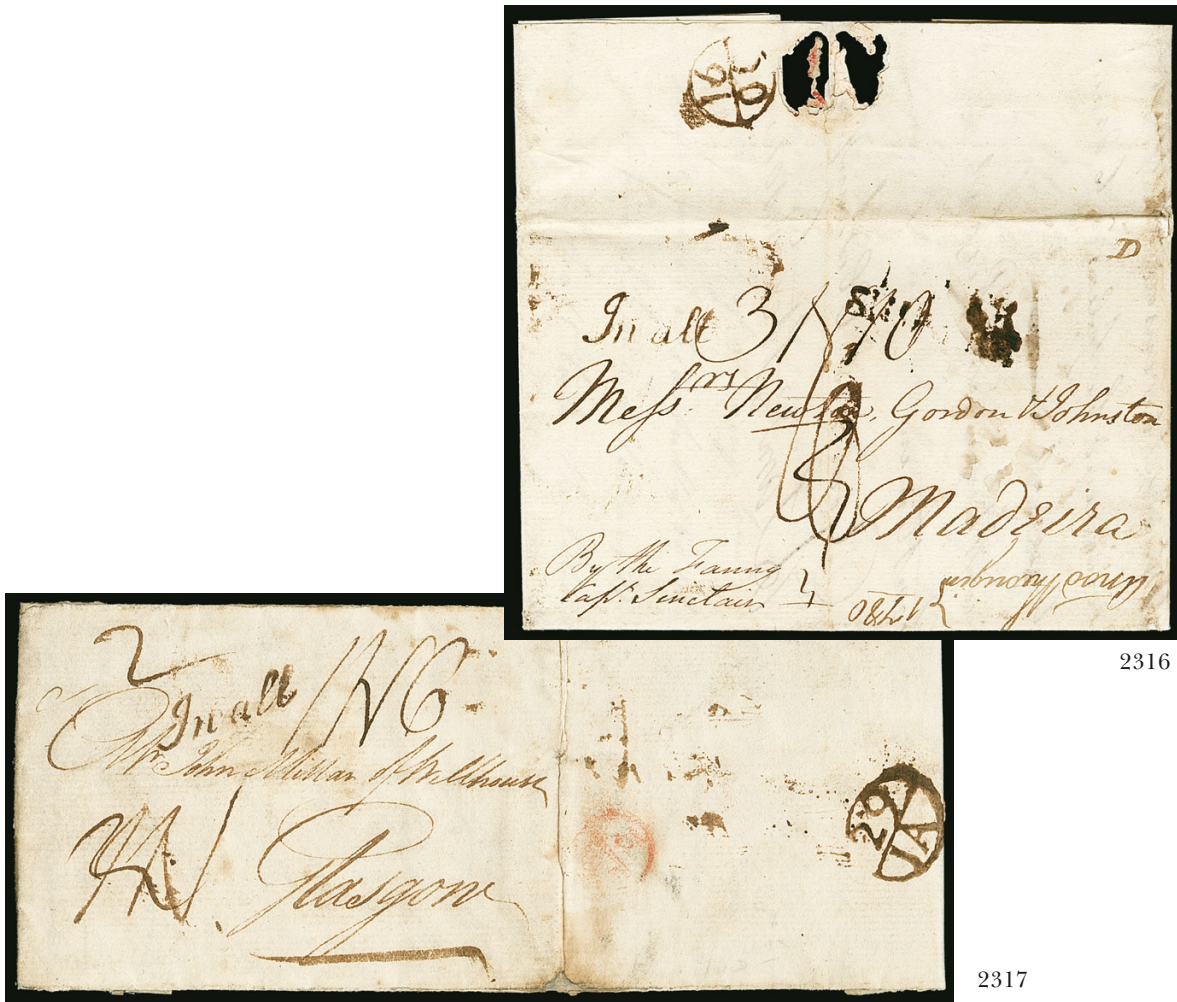 16
OC
D
In all 3 N 10
SHIP
Mess.rs Newton, Gordon & Johnston
Madeira
By the Fanny
Cap.t Sinclair
1780
2316
2
In all 1 N 6
Mr. John Millar of Wellhouse
Glasgow
20
IA
2317